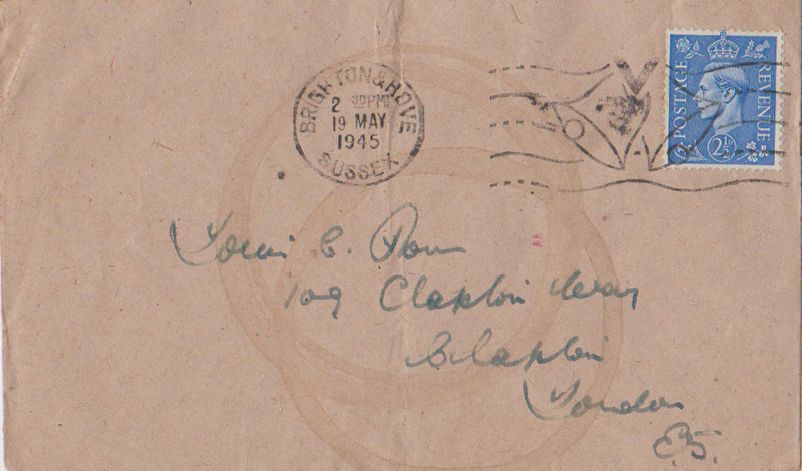 BRIGHTON & HOVE
2 30 PM
19 MAY
1945
SUSSEX
POSTAGE
REVENUE
2½
Louis C.
109 Clapton Way
Clapton
London
E.5.